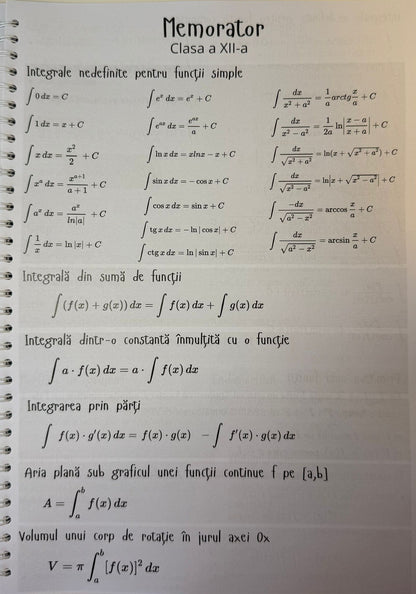 Memorator
Clasa a XII-a
Integrale nedefinite pentru funcții simple
∫ 0 dx = C
∫ 1 dx = x + C
∫ x dx = x²/2 + C
∫ xᵃ dx = xᵃ⁺¹/(a + 1) + C
∫ aˣ dx = aˣ/ln|a| + C
∫ 1/x dx = ln |x| + C
∫ eˣ dx = eˣ + C
∫ eᵃˣ dx = eᵃˣ/a + C
∫ ln x dx = xlnx − x + C
∫ sin x dx = − cos x + C
∫ cos x dx = sin x + C
∫ tg x dx = − ln | cos x| + C
∫ ctg x dx = ln | sin x| + C
∫ dx/(x² + a²) = 1/a arctg x/a + C
∫ dx/(x² − a²) = 1/2a ln|(x − a)/(x + a)| + C
∫ dx/√(x² + a²) = ln(x + √(x² + a²)) + C
∫ dx/√(x² − a²) = ln|x + √(x² − a²)| + C
∫ −dx/√(a² − x²) = arccos x/a + C
∫ dx/√(a² − x²) = arcsin x/a + C
Integrală din sumă de funcții
∫ (f(x) + g(x)) dx = ∫ f(x) dx + ∫ g(x) dx
Integrală dintr-o constantă înmulțită cu o funcție
∫ a · f(x) dx = a · ∫ f(x) dx
Integrarea prin părți
∫ f(x) · g′(x) dx = f(x) · g(x) − ∫ f′(x) · g(x) dx
Aria plană sub graficul unei funcții continue f pe [a,b]
A = ∫ₐᵇ f(x) dx
Volumul unui corp de rotație în jurul axei Ox
V = π ∫ₐᵇ [f(x)]² dx